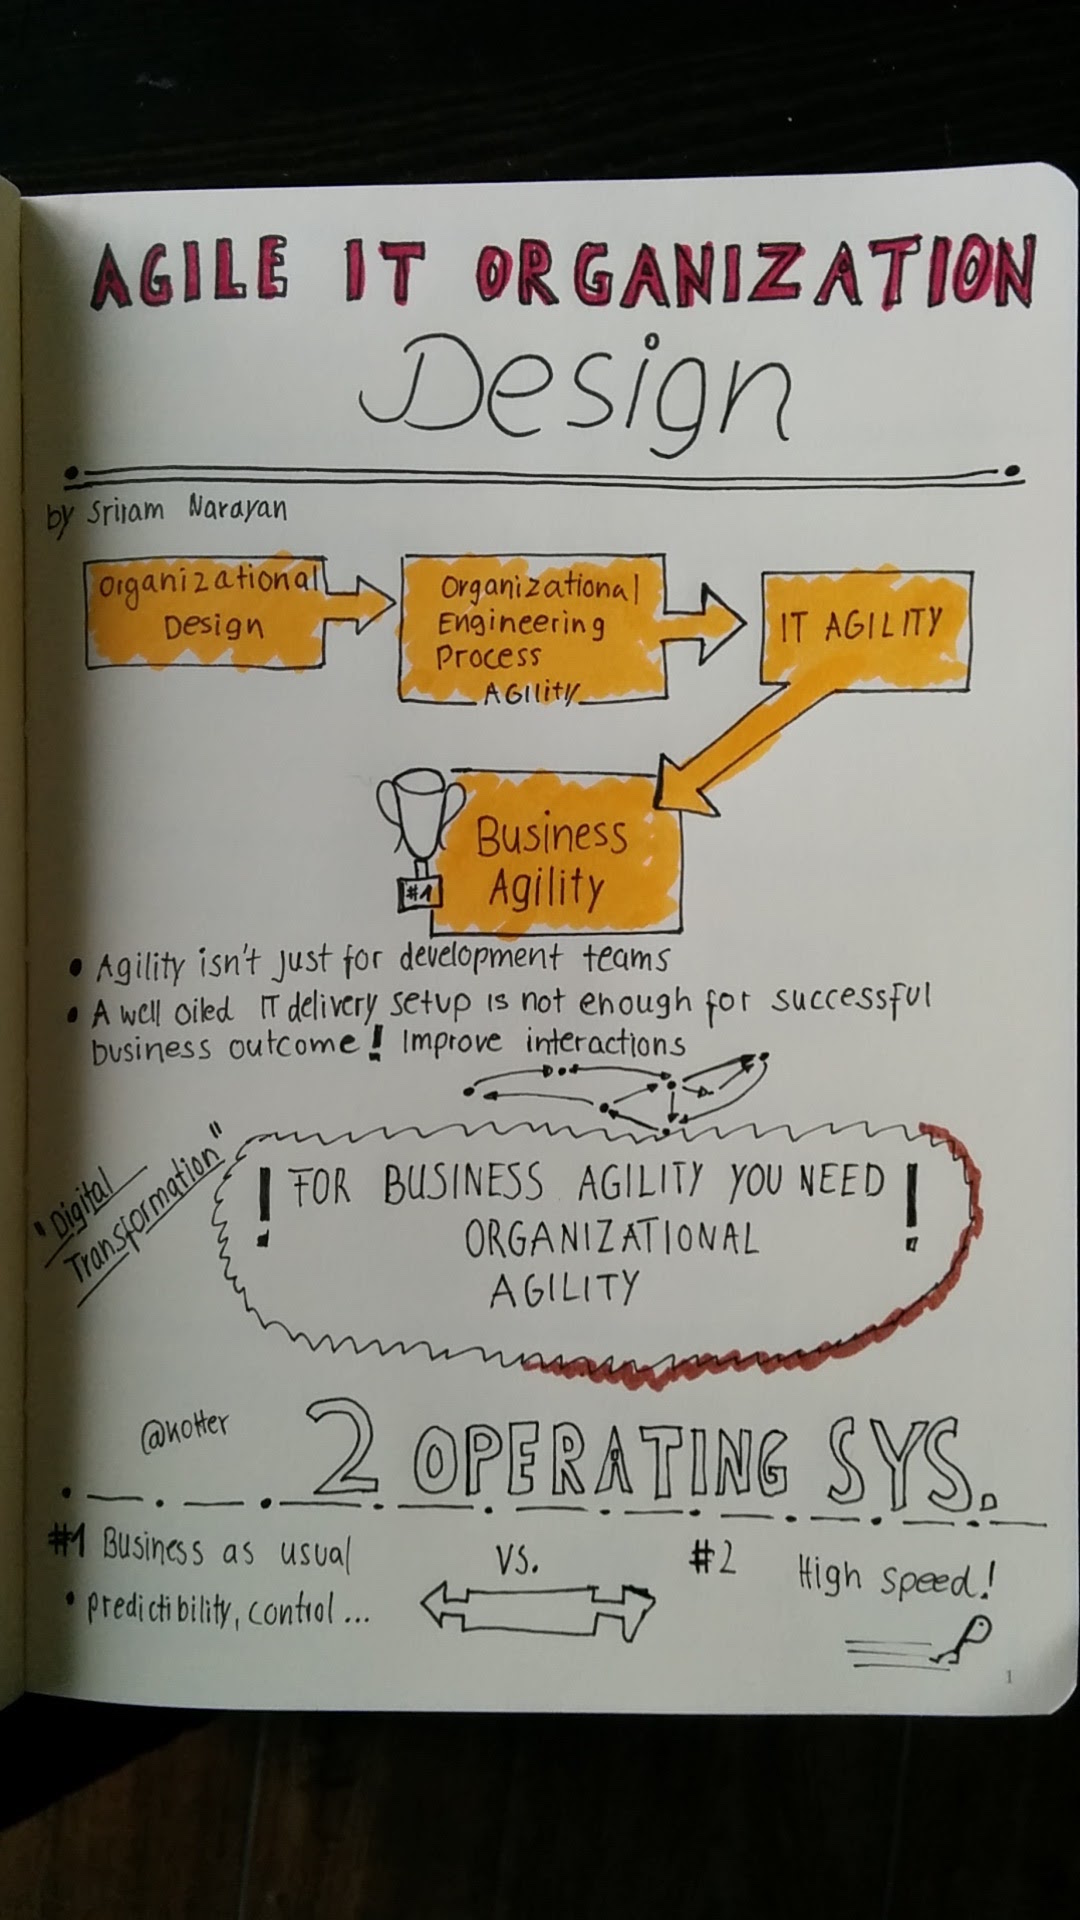 AGILE IT ORGANIZATION
Design
by Sriram Narayan
Organizational
Design
Organizational
Engineering
Process
AGIlity
IT AGILITY
#1
Business
Agility
• Agility isn't just for development teams
• A well oiled IT delivery setup is not enough for successful
business outcome! Improve interactions
"Digital
Transformation"
! FOR BUSINESS AGILITY YOU NEED !
ORGANIZATIONAL
AGILITY
@kotter
2 OPERATING SYS.
#1 Business as usual
vs.
#2 High speed!
• predictibility, control...
1